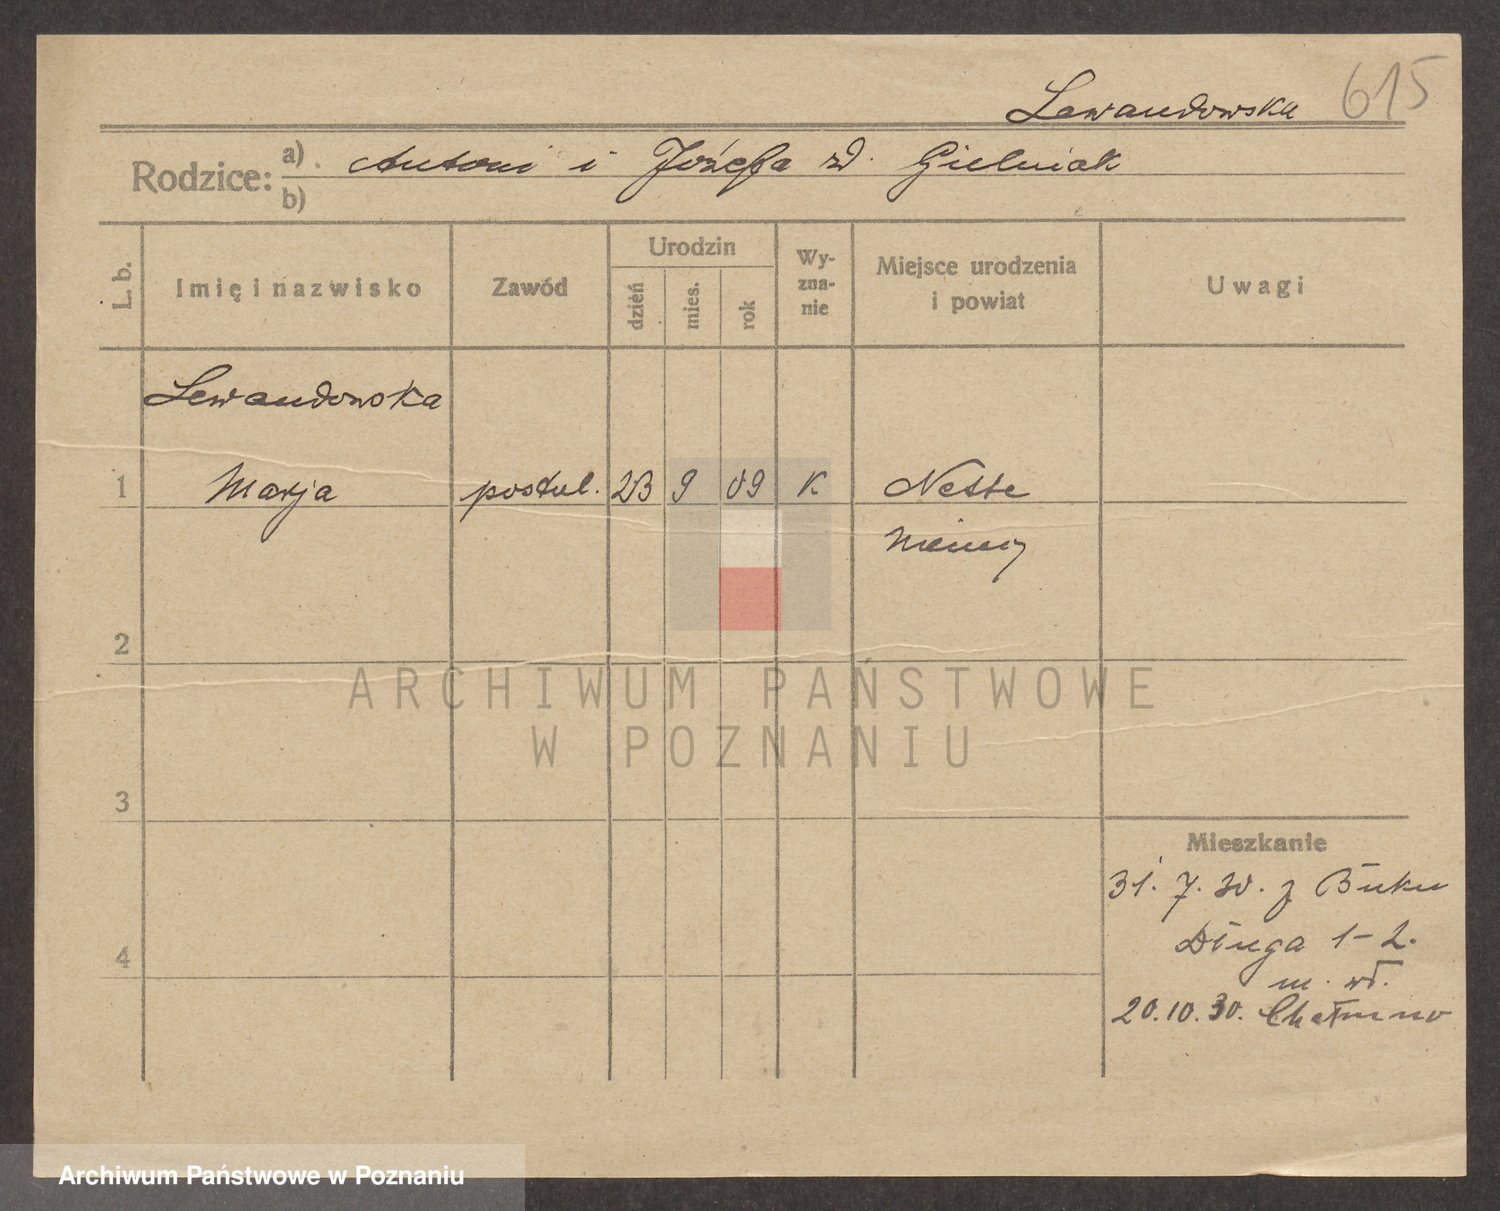 Lewandowska 615
Rodzice: a) Antoni i Józefa zd. Gielniak
b)
L. b. Imię i nazwisko Zawód Urodzin dzień mies. rok Wy-zna-nie Miejsce urodzenia i powiat Uwagi
Lewandowska
1 Marja postul. 23 9 09 K Nette
Niemcy
2
ARCHIWUM PAŃSTWOWE
W POZNANIU
3
Mieszkanie
31. 7. 30. z Buku
Długa 1-2.
4
m. wł.
20.10.30. Chełmno
Archiwum Państwowe w Poznaniu